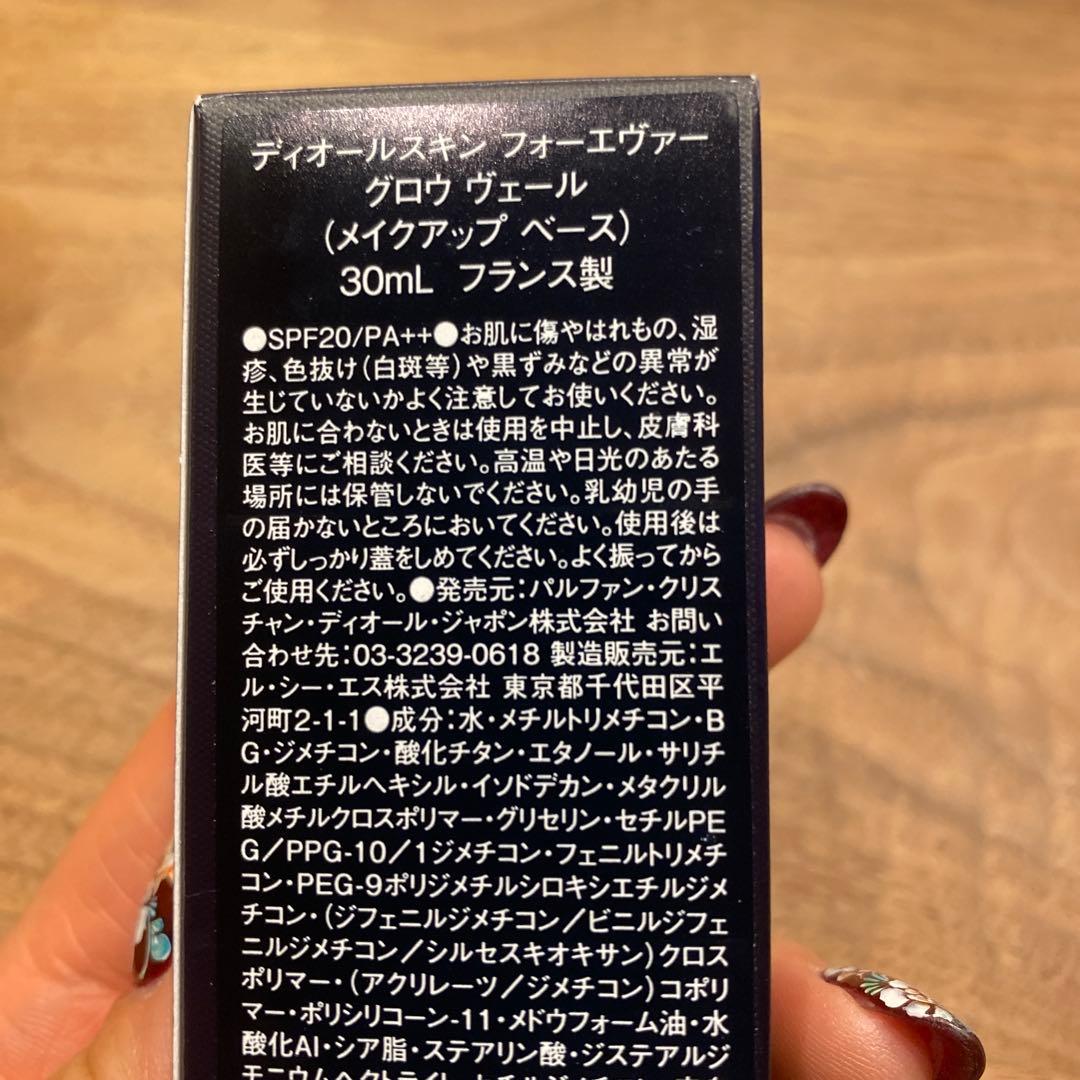 ディオールスキン フォーエヴァー
グロウ ヴェール
(メイクアップ ベース)
30mL フランス製
●SPF20/PA++●お肌に傷やはれもの、湿
疹、色抜け(白斑等)や黒ずみなどの異常が
生じていないかよく注意してお使いください。
お肌に合わないときは使用を中止し、皮膚科
医等にご相談ください。高温や日光のあたる
場所には保管しないでください。乳幼児の手
の届かないところにおいてください。使用後は
必ずしっかり蓋をしめてください。よく振ってから
ご使用ください。●発売元:パルファン・クリス
チャン・ディオール・ジャポン株式会社 お問い
合わせ先:03-3239-0618 製造販売元:エ
ル・シー・エス株式会社 東京都千代田区平
河町2-1-1●成分:水・メチルトリメチコン・B
G・ジメチコン・酸化チタン・エタノール・サリチ
ル酸エチルヘキシル・イソドデカン・メタクリル
酸メチルクロスポリマー・グリセリン・セチルPE
G/PPG-10/1ジメチコン・フェニルトリメチ
コン・PEG-9ポリジメチルシロキシエチルジメ
チコン・(ジフェニルジメチコン/ビニルジフェ
ニルジメチコン/シルセスキオキサン)クロス
ポリマー・(アクリレーツ/ジメチコン)コポリ
マー・ポリシリコーン-11・メドウフォーム油・水
酸化Al・シア脂・ステアリン酸・ジステアルジ
モニウムヘクトライト・